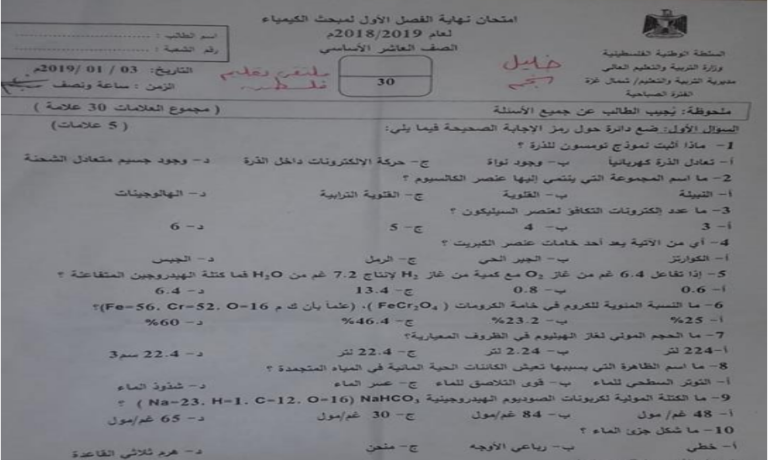 امتحان نهاية الفصل الأول لمبحث الكيمياء
لعام 2018/2019م
الصف العاشر الأساسي
اسم الطالب :
رقم الشعبة :
السلطة الوطنية الفلسطينية
وزارة التربية والتعليم العالي
مديرية التربية والتعليم/ شمال غزة
الفترة الصباحية
30
التاريخ: 03 / 01 /2019م
الزمن : ساعة ونصف
خليل
ملتقى تعليم
فلسطين
ملحوظة: يُجيب الطالب عن جميع الأسئلة ( مجموع العلامات 30 علامة )
السؤال الأول: ضع دائرة حول رمز الإجابة الصحيحة فيما يلي: ( 5 علامات)
1- ماذا أثبت نموذج تومسون للذرة ؟
أ- تعادل الذرة كهربائياً ب- وجود نواة ج- حركة الإلكترونات داخل الذرة د- وجود جسيم متعادل الشحنة
2- ما اسم المجموعة التي ينتمي إليها عنصر الكالسيوم ؟
أ- النبيلة ب- القلوية ج- القلوية الترابية د- الهالوجينات
3- ما عدد إلكترونات التكافؤ لعنصر السيليكون ؟
أ- 3 ب- 4 ج- 5 د- 6
4- أي من الآتية يعد أحد خامات عنصر الكبريت ؟
أ- الكوارتز ب- الجير الحي ج- الرمل د- الجبس
5- إذا تفاعل 6.4 غم من غاز O₂ مع كمية من غاز H₂ لإنتاج 7.2 غم من H₂O فما كتلة الهيدروجين المتفاعلة ؟
أ- 0.6 ب- 0.8 ج- 13.4 د- 6.4
6- ما النسبة المئوية للكروم في خامة الكرومات ( FeCr₂O₄ )، (علماً بأن ك م Fe=56, Cr=52, O=16)؟
أ- 25% ب- 23.2% ج- 46.4% د- 60%
7- ما الحجم المولي لغاز الهيليوم في الظروف المعيارية؟
أ- 224 لتر ب- 2.24 لتر ج- 22.4 لتر د- 22.4 سم3
8- ما اسم الظاهرة التي بسببها تعيش الكائنات الحية المائية في المياه المتجمدة ؟
أ- التوتر السطحي للماء ب- قوى التلاصق للماء ج- عسر الماء د- شذوذ الماء
9- ما الكتلة المولية لكربونات الصوديوم الهيدروجينية NaHCO₃ (Na=23, H=1, C=12, O=16) ؟
أ- 48 غم/ مول ب- 84 غم/مول ج- 30 غم/مول د- 65 غم/مول
10- ما شكل جزئ الماء ؟
أ- خطي ب- رباعي الأوجه ج- منحن د- هرم ثلاثي القاعدة